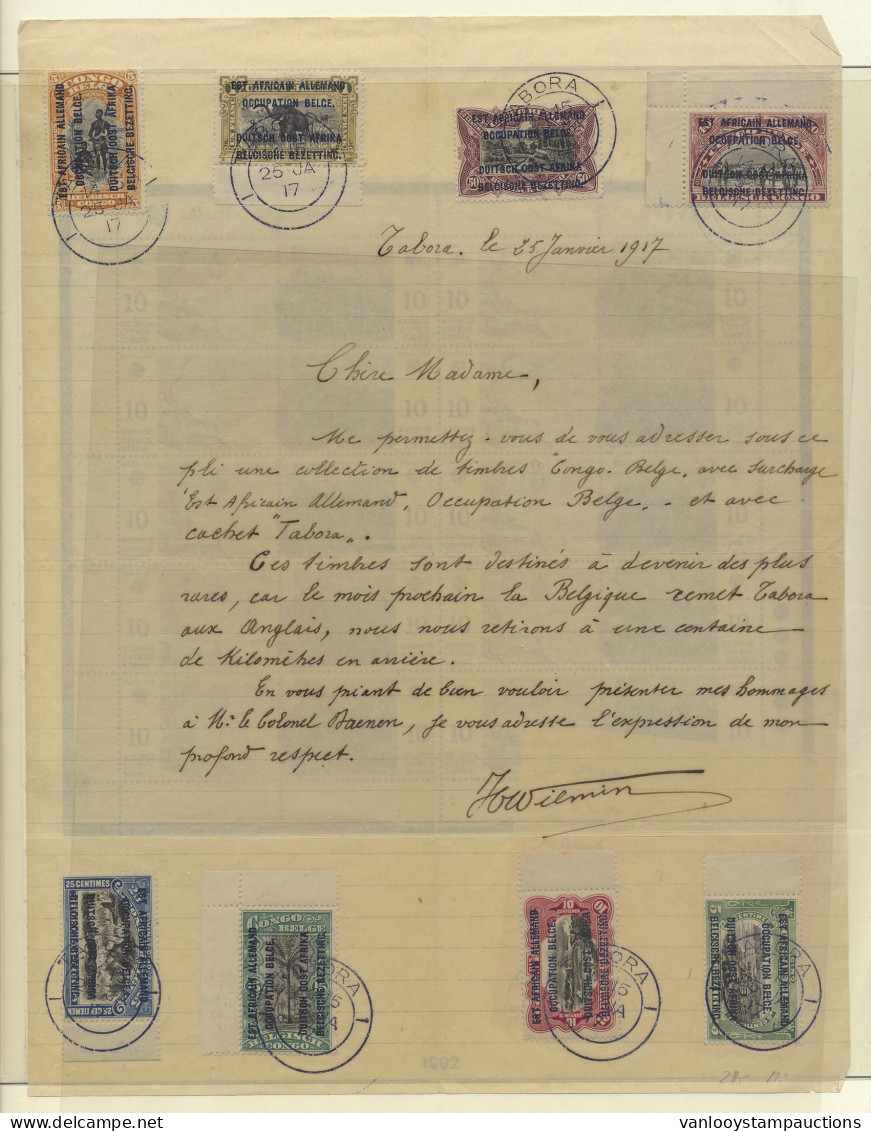 CONGO BELGE
EST AFRICAIN ALLEMAND
OCCUPATION BELGE.
DUITSCH OOST AFRIKA
BELGISCHE BEZETTING.
CONGO
25 JA
17
EST AFRICAIN ALLEMAND
OCCUPATION BELGE.
DUITSCH OOST AFRIKA
BELGISCHE BEZETTING.
25 JA
17
TABORA
EST AFRICAIN ALLEMAND
OCCUPATION BELGE.
DUITSCH OOST AFRIKA
BELGISCHE BEZETTING.
50 50
EST AFRICAIN ALLEMAND
OCCUPATION BELGE.
DUITSCH OOST AFRIKA
BELGISCHE BEZETTING.
Tabora. le 25 Janvier 1917
Chère Madame,
Me permettez-vous de vous adresser sous ce
pli une collection de timbres "Congo. Belge. avec surcharge
"Est Africain Allemand, Occupation Belge. - et avec
cachet "Tabora".
Ces timbres sont destinés à devenir des plus
rares, car le mois prochain la Belgique remet Tabora
aux Anglais, nous nous retirons à une centaine
de Kilomètres en arrière.
En vous priant de bien vouloir présenter mes hommages
à Mr. le Colonel Baenen, je vous adresse l'expression de mon
profond respect.
25 CENTIMES
EST AFRICAIN ALLEMAND
BELGISCHE BEZETTING.
25 CENTIEMEN
CONGO BELGE
EST AFRICAIN ALLEMAND
OCCUPATION BELGE.
DUITSCH OOST AFRIKA
BELGISCHE BEZETTING.
BELGISCH
CONGO
10
EST AFRICAIN ALLEMAND
OCCUPATION BELGE.
DUITSCH OOST AFRIKA
BELGISCHE BEZETTING.
10
EST AFRICAIN ALLEMAND
OCCUPATION BELGE.
DUITSCH OOST AFRIKA
BELGISCHE BEZETTING.
1992
vanlooystampauctions